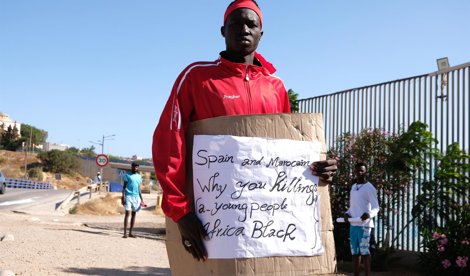 Spain and Morocain
Why you killings
a-young people
Africa Black